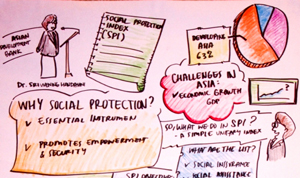 ASIAN
DEVELOPMENT
BANK
SOCIAL PROTECTION
INDEX
(SPI)
DEVELOPING
ASIA
CHALLENGES IN
ASIA
✓ ECONOMIC GROWTH
GDP
WHY SOCIAL PROTECTION?
✓ ESSENTIAL INSTRUMEN
✓ PROMOTES EMPOWERMENT
& SECURITY
SO WHAT WE DO IN SPI?
WHAT ARE THE LIST?
✓ SOCIAL INSURANCE
SOCIAL ASSISTANCE
SPI OBJECTIVE